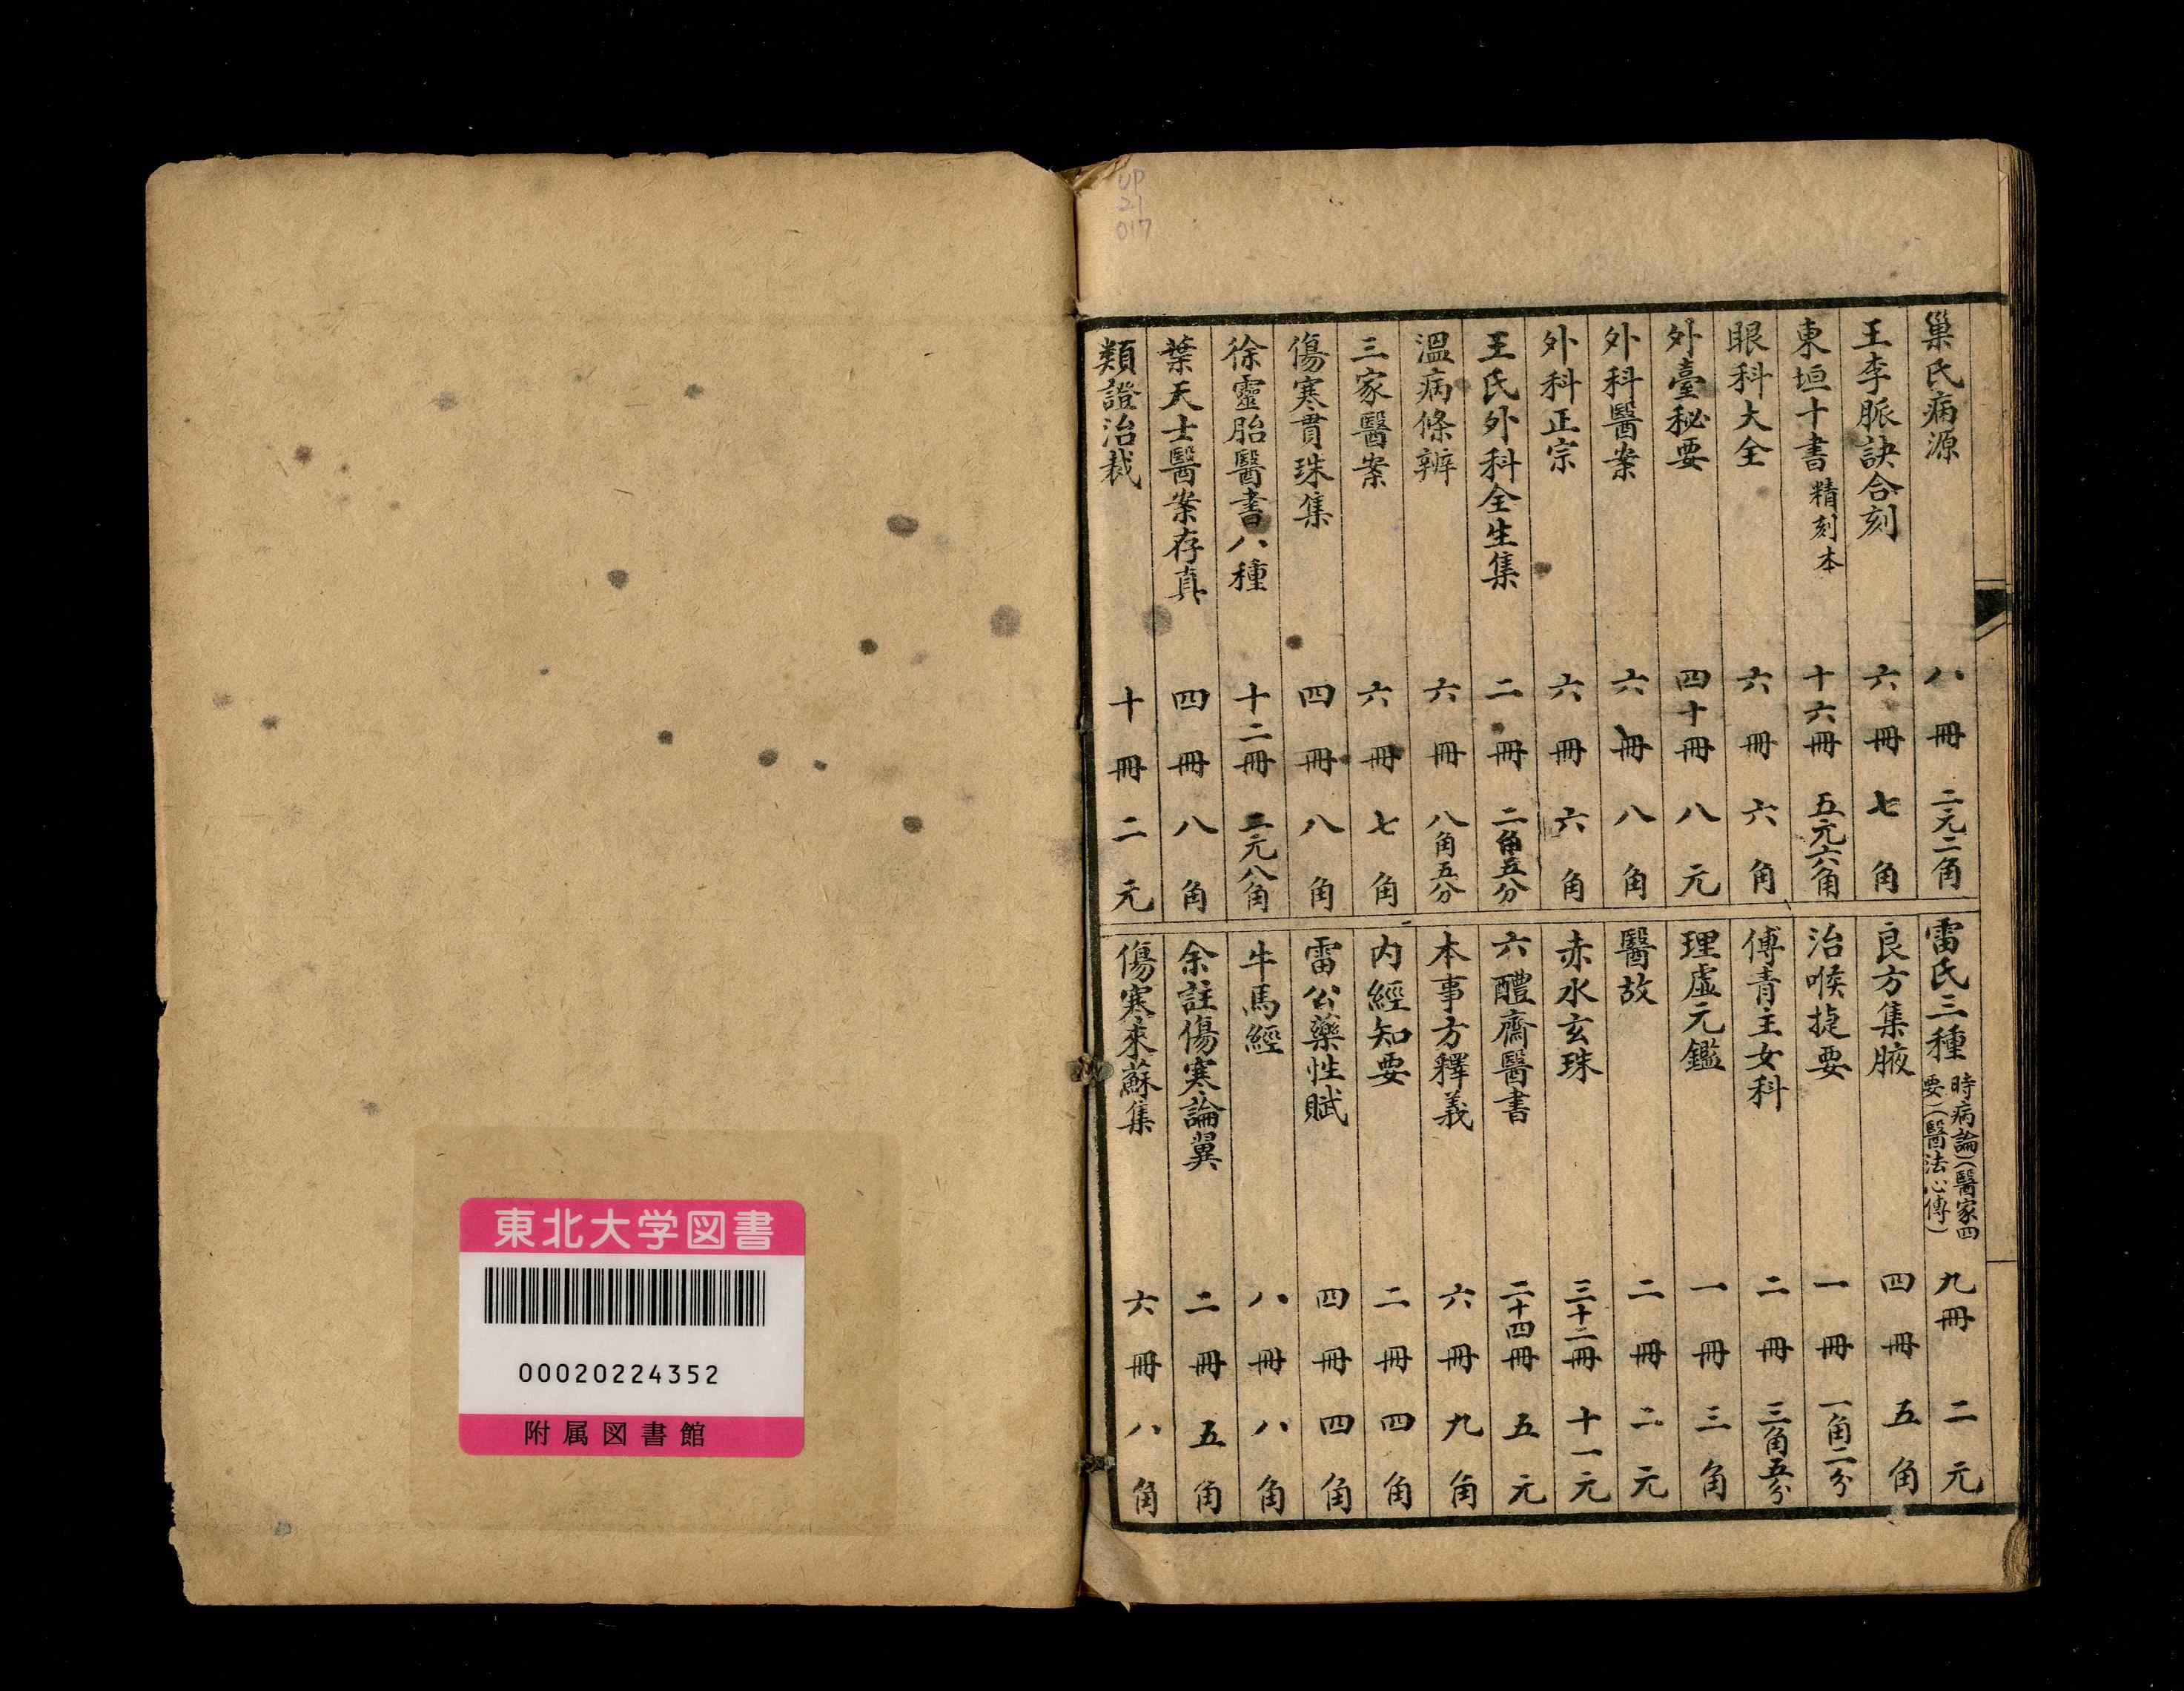 巢氏病源 八冊 二元二角
王李脈訣合刻 六冊 七角
東垣十書 精刻本 十六冊 五元六角
眼科大全 六冊 六角
外臺秘要 四十冊 八元
外科醫案 六冊 八角
外科正宗 六冊 六角
王氏外科全生集 二冊 二角五分
溫病條辨 六冊 八角五分
三家醫案 六冊 七角
傷寒貫珠集 四冊 八角
徐靈胎醫書八種 十二冊 元八角
葉天士醫案存真 四冊 八角
類證治裁 十冊 二元
雷氏三種 時病論)(醫家四要)(醫法心傳) 九冊 二元
良方集腋 四冊 五角
治喉捷要 一冊 一角二分
傅青主女科 二冊 三角五分
理虛元鑑 一冊 三角
醫故 二冊 二元
赤水玄珠 三十二冊 十一元
六醴齋醫書 二十四冊 五元
本事方釋義 六冊 九角
内經知要 二冊 四角
雷公藥性賦 四冊 四角
牛馬經 八冊 八角
余註傷寒論翼 二冊 五角
傷寒來蘇集 六冊 八角
UP
21
017
東北大学図書
00020224352
附属図書館